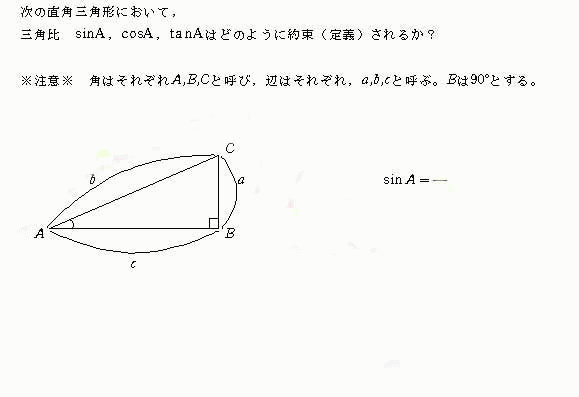 次の直角三角形において，
三角比　sinA，cosA，tanAはどのように約束（定義）されるか？
※注意※　角はそれぞれA,B,Cと呼び，辺はそれぞれ，a,b,cと呼ぶ。Bは90°とする。
C
b
a
sin A = —
A
B
c